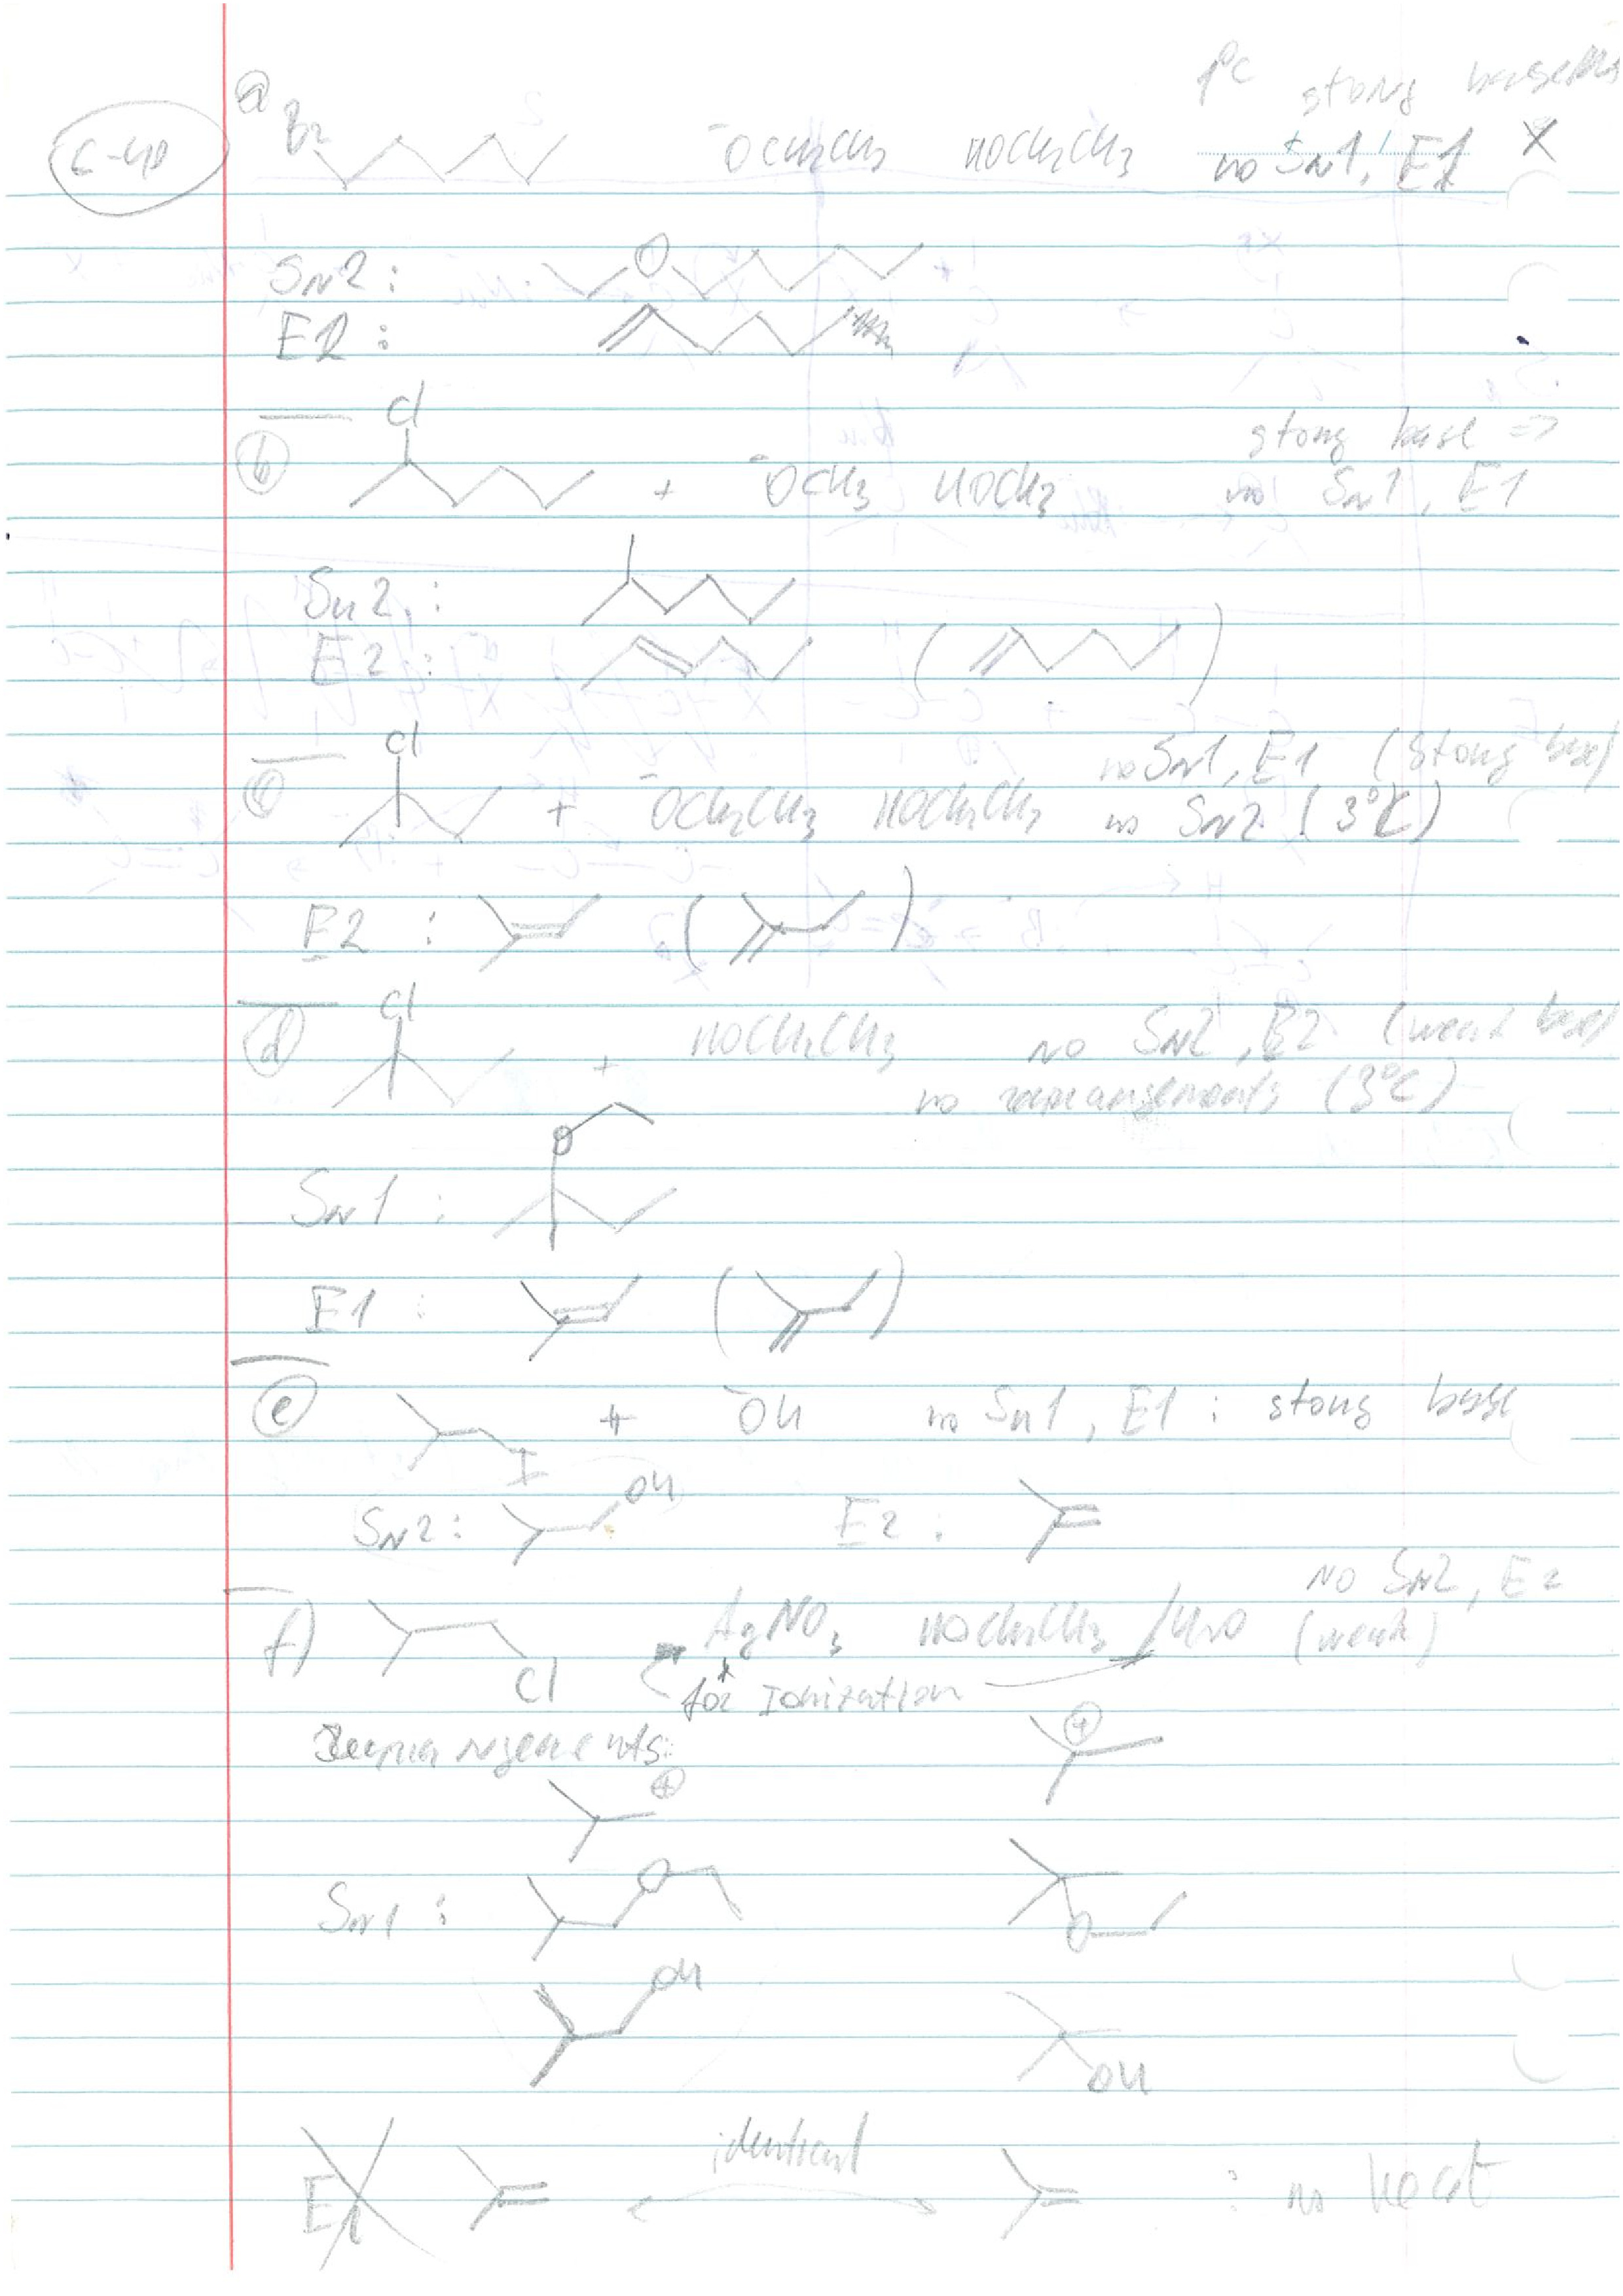 6-40
ⓐ Br ⁻OCH₂CH₃ HOCH₂CH₃ 1°C stong
no SN1, E1 X
SN2 : O
E2 :
ⓑ Cl + ⁻OCH₃ HOCH₃ stong base =>
no SN1, E1
SN2 :
E2 : ( )
ⓒ Cl + ⁻OCH₂CH₃ HOCH₂CH₃ no SN1, E1 (stong base)
no SN2 (3°C)
E2 : ( )
ⓓ Cl + HOCH₂CH₃ no SN2, E2 (weak base)
no rearrangements (3°C)
O
SN1 :
E1 : ( )
ⓔ I + ⁻OH no SN1, E1 : stong base
SN2 : OH E2 :
f) Cl AgNO₃ HOCH₂CH₃ /H₂O no SN2, E2
(weak)
for Ionization
Rearrangements:
⊕ ⊕
SN1 : O O
OH OH
E1 identical : no heat